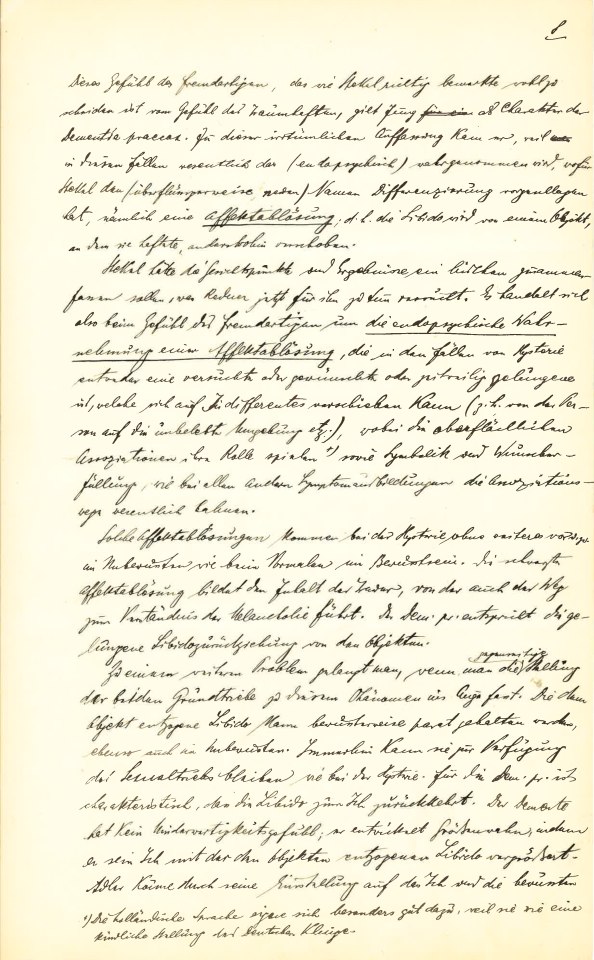 8
Dieses Gefühl des fremdartigen, das wie Stekel richtig bemerkte wohl zu
scheiden ist vom Gefühl des Traumhaften, gilt Jung für ein als Charakter der
Dementia praecox. Zu dieser irrtümlichen Auffassung kam er, weil
in diesen Fällen wesentlich das (endopsychisch) wahrgenommen wird, wofür
Stekel den (überflüssigerweise neuen) Namen Differenzierung vorgeschlagen
hat, nämlich eine Affektablösung, d.h. die Libido wird von einem Objekt,
an dem sie haftete, anderswohin verschoben.
Stekel hätte die Gesichtspunkte und Ergebnisse ein bischen zusammen-
fassen sollen, was Redner jetzt für ihn zu tun versucht. Es handelt sich
also beim Gefühl des fremdartigen um die endopsychische Wahr-
nehmung einer Affektablösung, die in den Fällen von Hysterie
entweder eine versuchte oder gewünschte oder zeitweilig gelungene
ist, welche sich auf Indifferentes verschieben kann (z.b. von der Per-
son auf die unbelebte Umgebung etz.), wobei die oberflächlichen
Assoziationen ihre Rolle spielen ¹) sowie Symbolik und Wunscher-
füllung, wie bei allen andern Symptomausbildungen die Assoziations-
wege wesentlich bahnen.
Solche Affektablösungen kommen bei der Hysterie ohne weiteres vor
im Unbewussten wie beim Normalen im Bewusstsein. Die schwerste
Affektablösung bildet den Inhalt der Trauer, von der auch der Weg
zum Verständnis der Melancholie führt. Der Dem. pr. entspricht die ge-
lungene Libidozurückziehung von den Objekten.
Zu einem weitern Problem gelangt man, wenn man die gegenseitige Stellung
der beiden Grundtriebe zu diesem Phänomen ins Auge fasst. Die dem
Objekt entzogene Libido kann bewussterweise parat gehalten werden,
ebenso auch im Unbewussten. Immerhin kann sie zur Verfügung
des Sexualtriebs bleiben wie bei der Hystrie. Für die Dem. pr. ist
charakteristisch, dass die Libido zum Ich zurückkehrt. Der Demente
hat kein Minderwertigkeitsgefühl; er entwickelt Größenwahn, indem
er sein Ich mit der den Objekten entzogenen Libido vergrößert.
Adler käme durch seine Einstellung auf das Ich und die bewussten
¹) Die holländische Sprache eigne sich besonders gut dazu, weil sie wie eine
kindliche Stellung des Deutschen klinge.